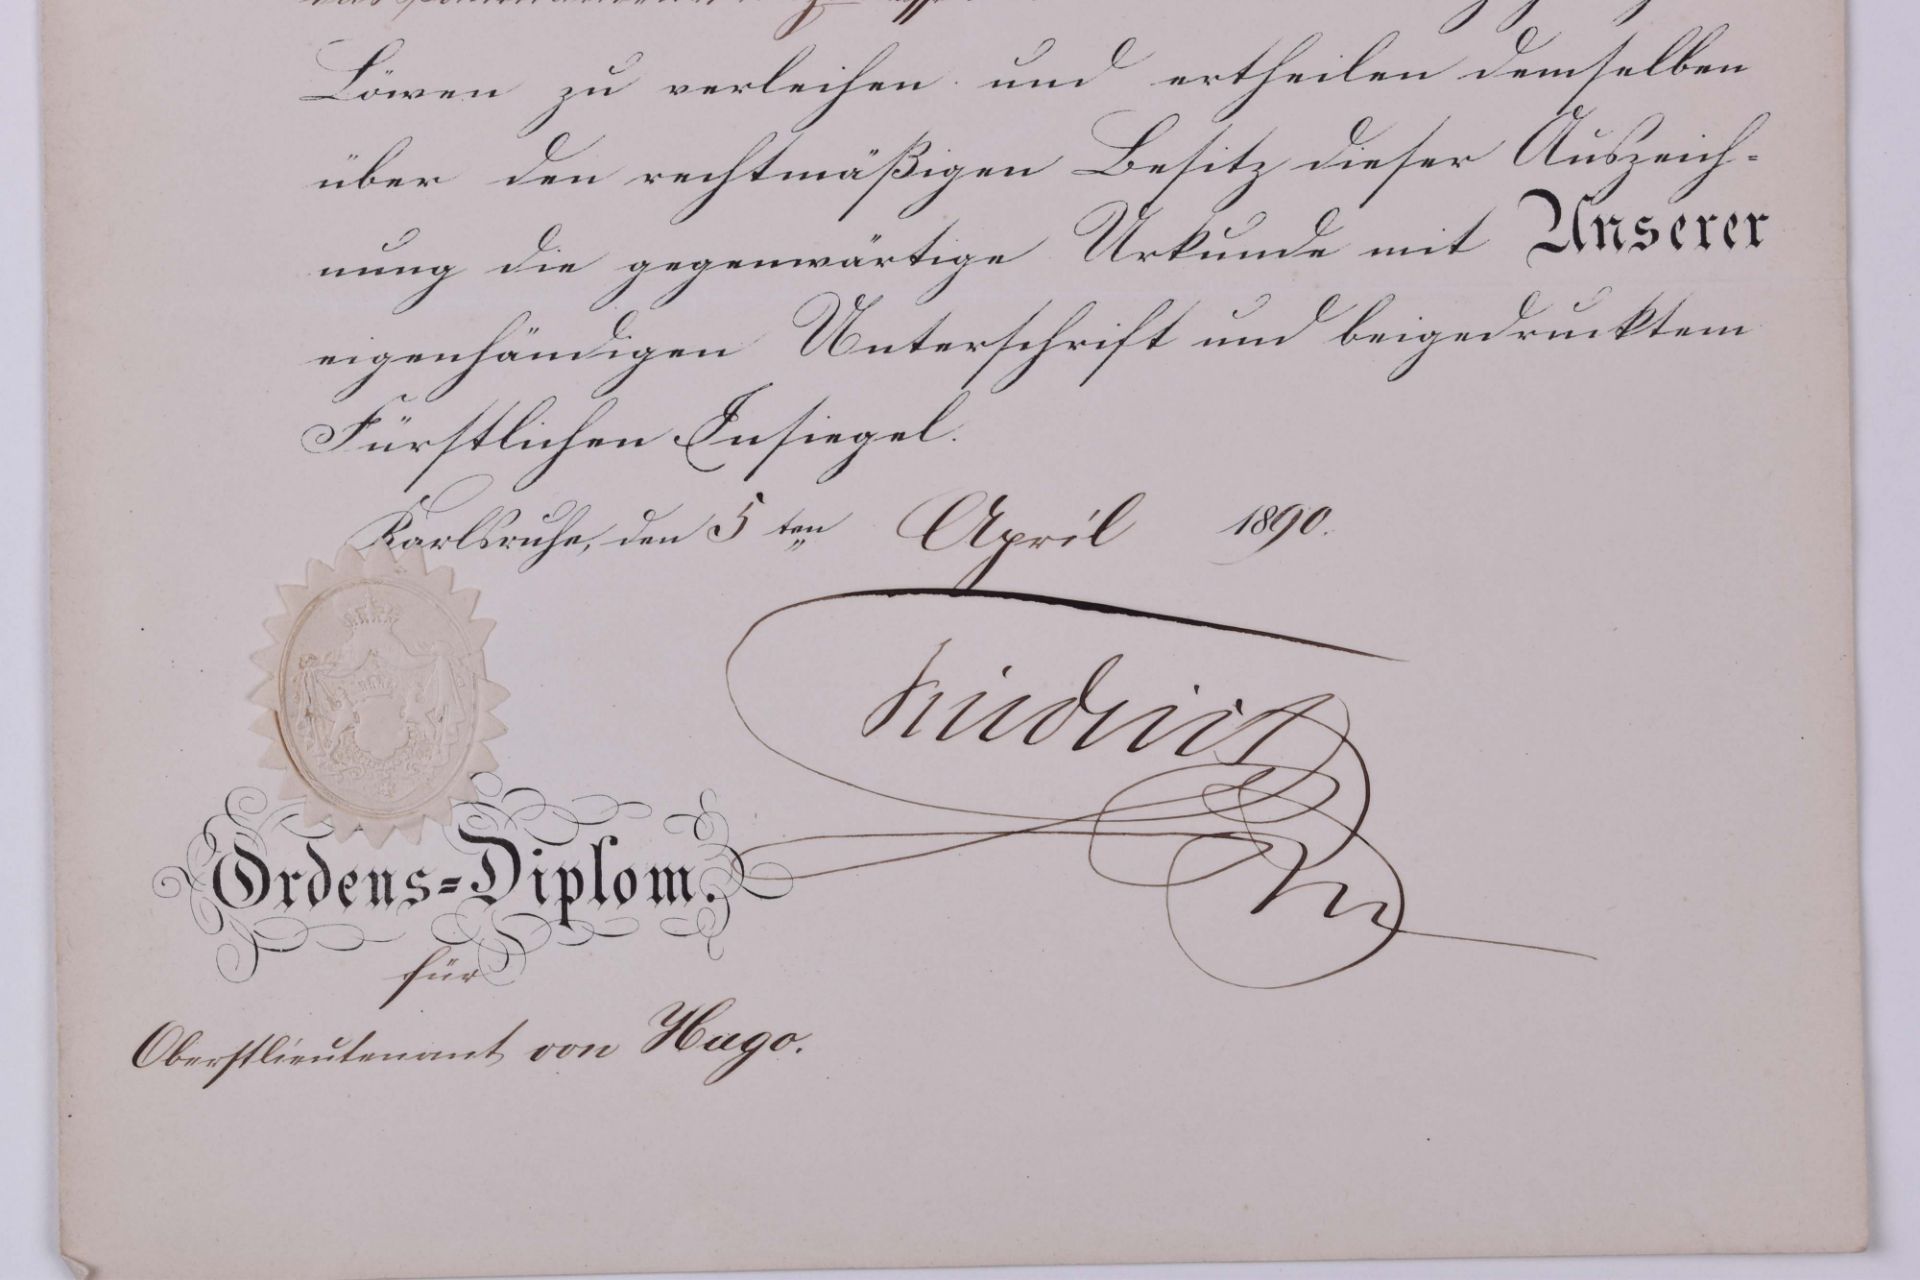 Löwen zu verleihen und ertheilen demselben
über den rechtmäßigen Besitz dieser Auszeich-
nung die gegenwärtige Urkunde mit Unserer
eigenhändigen Unterschrift und beigedrucktem
Fürstlichen Insiegel.
Karlsruhe, den 5ten April 1890.
Friedrich
Ordens-Diplom.
für
Oberstlieutenant von Hugo.